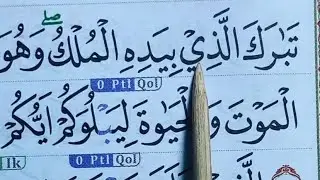 صلے
تَبٰرَكَ الَّذِيْ بِيَدِهِ الْمُلْكُ وَهُوَ
0 Ptl Qol
الْمَوْتَ وَالْحَيٰوةَ لِيَبْلُوَكُمْ اَيُّكُمْ
lk 0 Ptl Qol